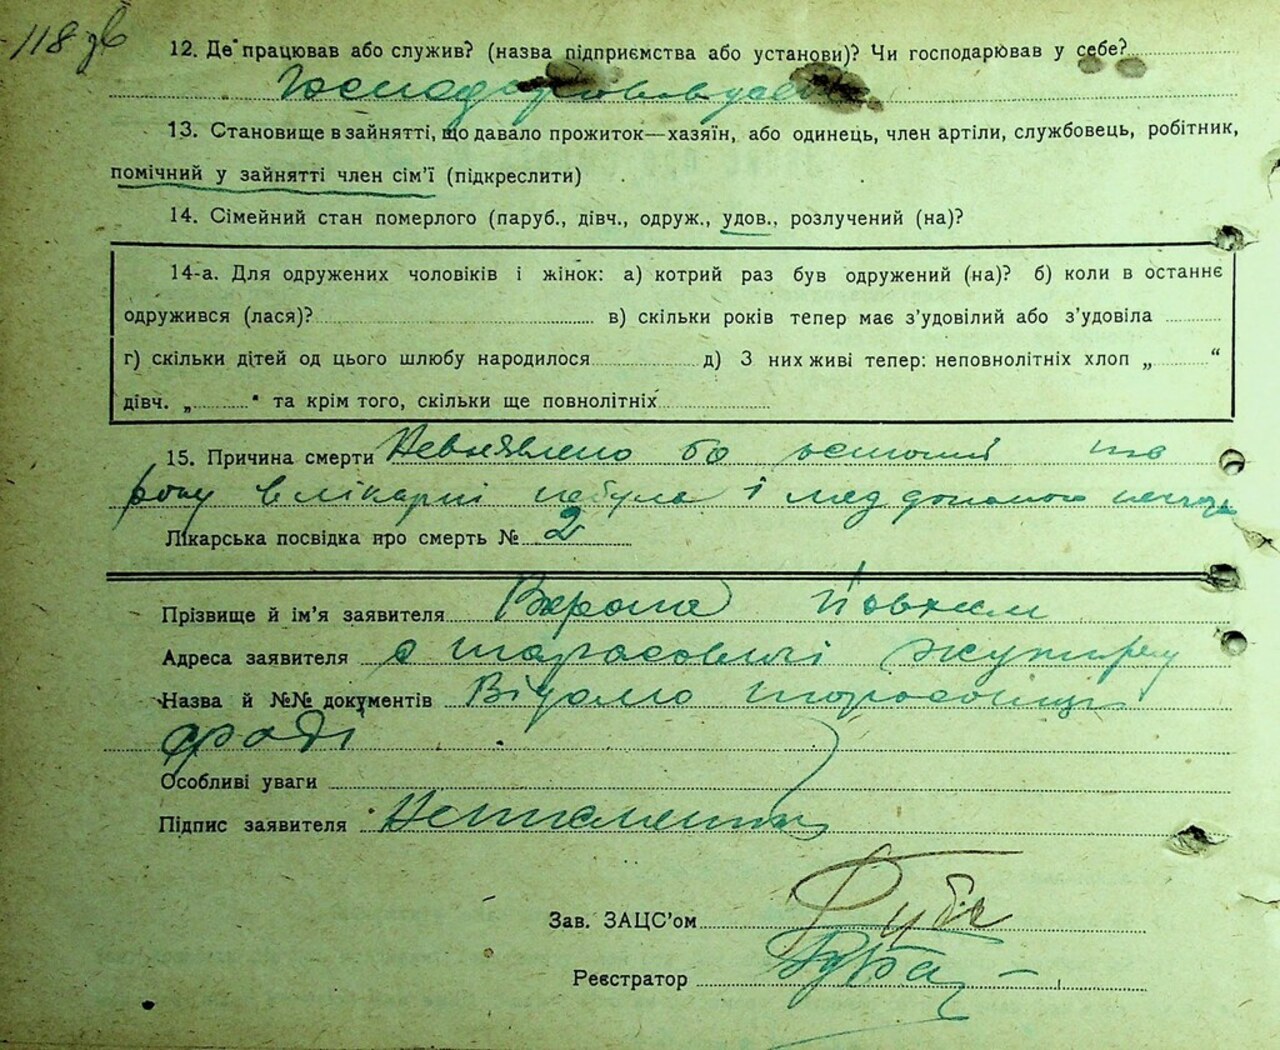 118 зв
12. Де працював або служив? (назва підприємства або установи)? Чи господарював у себе?
13. Становище в зайнятті, що давало прожиток—хазяїн, або одинець, член артіли, службовець, робітник,
помічний у зайнятті член сім'ї (підкреслити)
14. Сімейний стан померлого (паруб., дівч., одруж., удов., розлучений (на)?
14-а. Для одружених чоловіків і жінок: а) котрий раз був одружений (на)? б) коли в останнє
одружився (лася)? в) скільки років тепер має з'удовілий або з'удовіла
г) скільки дітей од цього шлюбу народилося д) З них живі тепер: неповнолітніх хлоп „ “
дівч. „ “ та крім того, скільки ще повнолітніх
15. Причина смерти Невиявлено бо
року в лікарні небула і мед
Лікарська посвідка про смерть № 2
Прізвище й ім'я заявителя Ворона
Адреса заявителя с Тарасовичі
Назва й №№ документів Відомо
Особливі уваги
Підпис заявителя Неписменний
Зав. ЗАЦС'ом
Реєстратор